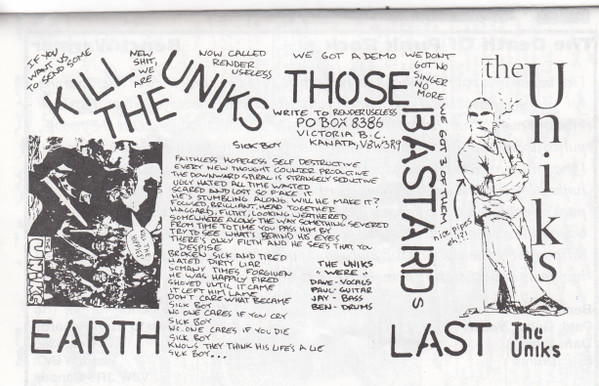 IF YOU
WANT US
TO SEND SOME
NEW
SHIT,
WE
ARE
NOW CALLED
RENDER
USELESS
WE GOT A DEMO
WE DONT
GOT NO
SINGER
NO
MORE
WE GOT 3 OF THEM
KILL
THE
UNIKS
THOSE
BASTARDS
WRITE TO RENDER USELESS
PO BOX 8386
VICTORIA B.C.
KANATA, V8W3R9
SICK BOY
FAITHLESS HOPELESS SELF DESTRUCTIVE
EVERY NEW THOUGHT COUNTER PRODUCTIVE
THE DOWNWARD SPIRAL IS STRANGELY SEDUCTIVE
UGLY HATED ALL TIME WASTED
SCARED AND LOST SO FAKE IT
HE'S STUMBLING ALONG. WILL HE MAKE IT?
FOCUSED, BRILLIANT, HEAD TOGETHER
HAGGARD, FILTHY, LOOKING WEATHERED
SOMEWHERE ALONG THE WAY SOMETHING SEVERED
FROM TIME TO TIME YOU PASS HIM BY
TRY TO SEE WHAT'S BEHIND HIS EYES
THERE'S ONLY FILTH AND HE SEES THAT YOU
DESPISE
BROKEN SICK AND TIRED
HATED DIRTY LIAR
SO MANY TIMES FORGIVEN
HE WAS HAPPILY FIRED
SHOVED UNTIL IT CAME
IT LEFT HIM LAME
DON'T CARE WHAT BECAME
SICK BOY
NO ONE CARES IF YOU CRY
SICK BOY
NO ONE CARES IF YOU DIE
SICK BOY
KNOWS THEY THINK HIS LIFE'S A LIE
SICK BOY...
THE UNIKS
"WERE"
DAVE-VOCALS
PAUL-GUITAR
JAY - BASS
BEN-DRUMS
the
Uniks
nice pipes
eh?!
UNIKS
EARTH
LAST
The
Uniks